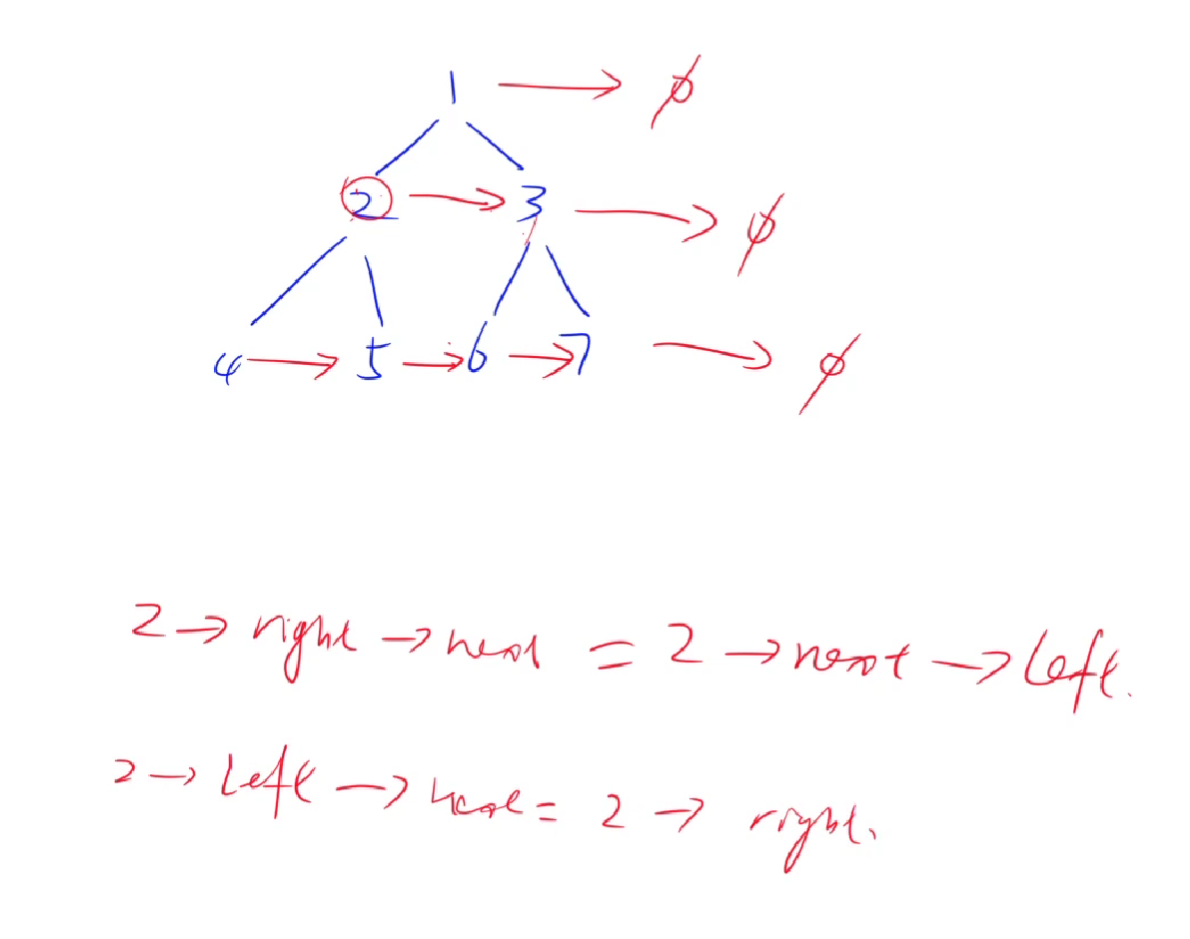 1 → ∅
2 → 3 → ∅
4 → 5 → 6 → 7 → ∅
2 → right → next = 2 → next → left.
2 → left → next = 2 → right.